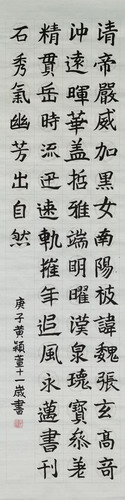 清帝嚴威加黑女南陽被諱魏張玄高奇
沖遠暉華盖哲雅端明曜漢泉瑰寶恭羙
精貫岳時流迅速軌摧年追風永邁書刊
石秀氣幽芳出自然
庚子黃穎萱十一歲書